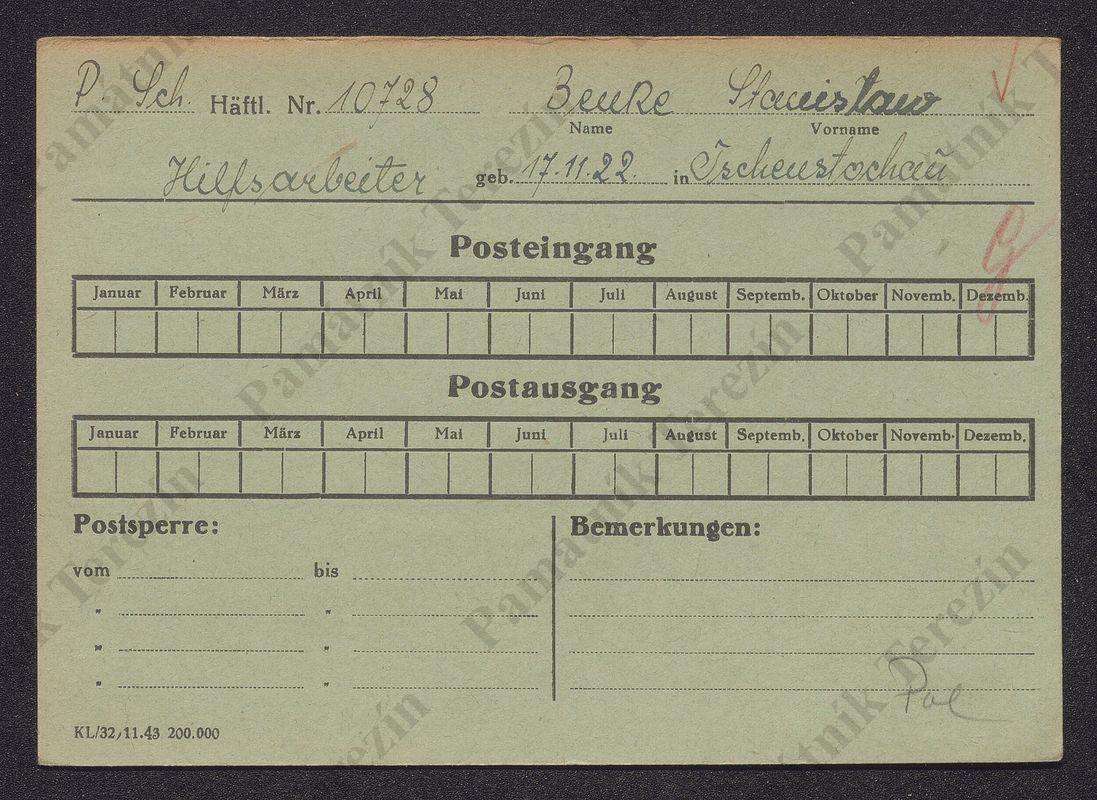 P Sch. Häftl. Nr. 10728 Benke Stanisław
Name Vorname
Hilfsarbeiter geb. 17.11.22. in Tschenstochau
Posteingang
Januar Februar März April Mai Juni Juli August Septemb. Oktober Novemb. Dezemb.
Postausgang
Januar Februar März April Mai Juni Juli August Septemb. Oktober Novemb. Dezemb.
Postsperre: Bemerkungen:
vom bis
" "
" "
" "
Pol
KL/32/11.43 200.000
Památník Terezín